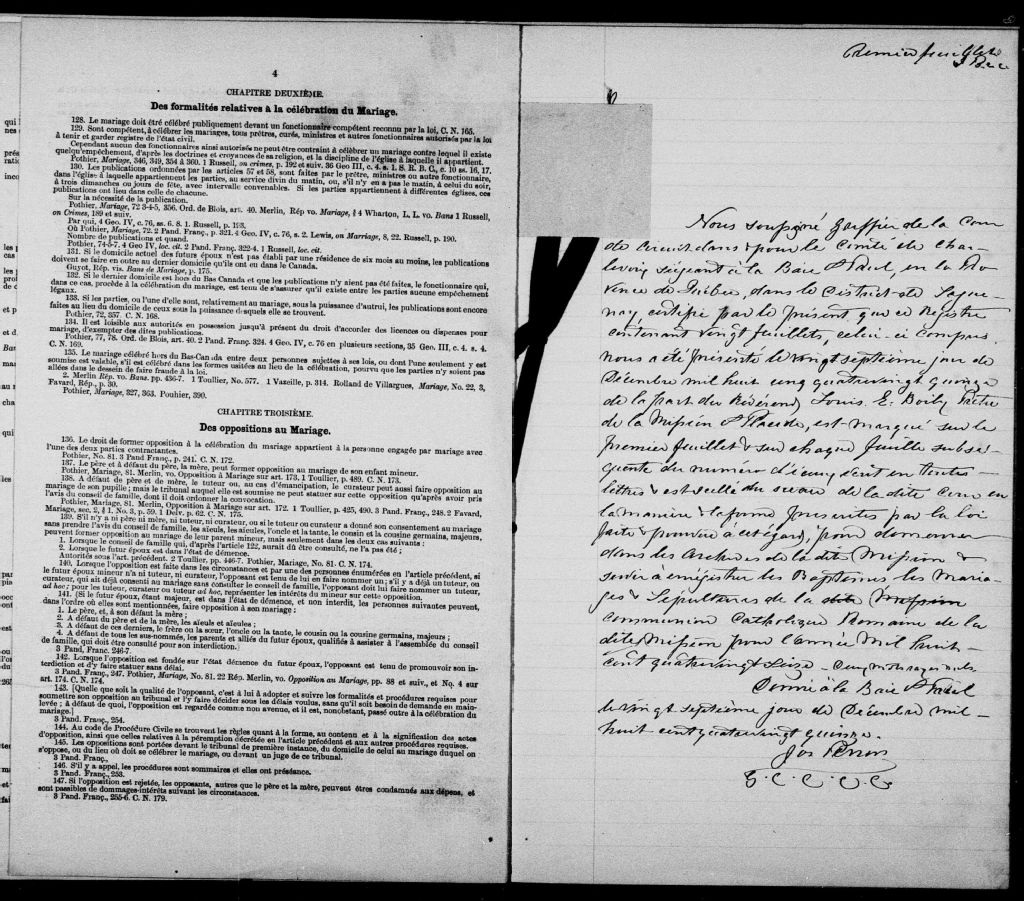 4
CHAPITRE DEUXIÈME.
Des formalités relatives à la célébration du Mariage.
128. Le mariage doit être célébré publiquement devant un fonctionnaire compétent reconnu par la loi, C. N. 165.
129. Sont compétent, à célébrer les mariages, tous prêtres, curés, ministres et autres fonctionnaires autorisés par la loi
à tenir et garder registre de l'état civil.
Cependant aucun des fonctionnaires ainsi autorisés ne peut être contraint à célébrer un mariage contre lequel il existe
quelqu'empêchement, d'après les doctrines et croyances de sa religion, et la discipline de l'église à laquelle il appartient.
Pothier, Mariage, 346, 349, 354 & 360. 1 Russell, on crimes, p. 192 et suiv. 36 Geo III, c. 4. s. 1. S. R. B. C., c. 10 ss. 16, 17.
130. Les publications ordonnées par les articles 57 et 58, sont faites par le prêtre, ministre ou autre fonctionnaire,
dans l'église à laquelle appartiennent les parties, au service divin du matin, ou, s'il n'y en a pas le matin, à celui du soir,
à trois dimanches ou jours de fête, avec intervalle convenables. Si les parties appartiennent à différentes églises, ces
publications ont lieu dans celle de chacune.
Sur la nécessité de la publication.
Pothier, Mariage, 72 3-4-5, 356. Ord. de Blois, art. 40. Merlin, Rép vo. Mariage, § 4 Wharton, L. L. vo. Bans 1 Russell,
on Crimes, 189 et suiv.
Par qui, 4 Geo. IV, c. 76, ss. 6. 8. 1. Russell, p. 193.
Où Pothier, Mariage, 72. 2 Pand. Franç., p. 321. 4 Geo. IV, c. 76, s. 2. Lewis, on Marriage, 8, 22. Russell, p. 190.
Nombre de publications et quand.
Pothier, 74-5-7. 4 Geo IV, loc. cit. 2 Pand. Franç. 322-4. 1 Russell, loc. cit.
131. Si le domicile actuel des futurs époux n'est pas établi par une résidence de six mois au moins, les publications
doivent se faire en outre au dernier domicile qu'ils ont eu dans le Canada.
Guyot, Rép. vis. Bans de Mariage, p. 175.
132. Si le dernier domicile est hors du Bas-Canada et que les publications n'y aient pas été faites, le fonctionnaire qui,
dans ce cas, procède à la célébration du mariage, est tenu de s'assurer qu'il existe entre les parties aucune empêchement
légaux.
133. Si les parties, ou l'une d'elles sont, relativement au mariage, sous la puissance d'autrui, les publications sont encore
faites au lieu du domicile de ceux sous la puissance desquels elle se trouvent.
Pothier, 72, 357. C. N. 168.
134. Il est loisible aux autorités en possession jusqu'à présent du droit d'accorder des licences ou dispenses pour
mariage, d'exempter des dites publications.
Pothier, 77, 78. Ord. de Blois, art. 40. 2 Pand. Franç. 324. 4 Geo IV, c. 76 en plusieurs sections, 35 Geo III, c. 4. s. 4.
C. N. 169.
135. Le mariage célébré hors du Bas-Canada entre deux personnes sujettes à ses lois, ou dont l'une seulement y est
soumise est valable, s'il est célébré dans les formes usitées au lieu de la célébration, pourvu que les parties n'y soient pas
allées dans le dessein de faire fraude à la loi.
2. Merlin Rép. vo. Bans. pp. 436-7. 1 Toullier, No. 577. 1 Vazeille, p. 314. Rolland de Villargues, Mariage, No. 22, 3,
Favard, Rép., p. 30.
Pothier, Mariage, 327, 363. Pouhier, 390.
CHAPITRE TROISIÈME.
Des oppositions au Mariage.
136. Le droit de former opposition à la célébration du mariage appartient à la personne engagée par mariage avec
l'une des deux parties contractantes.
Pothier, No. 81. 3 Pand Franç., p. 241. C. N. 172.
137. Le père et à défaut du père, la mère, peut former opposition au mariage de son enfant mineur.
Pothier, Mariage, 81. Merlin, vo. Opposition à Mariage sur art. 173. 1 Toullier, p. 489. C. N. 173.
138. A défaut de père et de mère, le tuteur ou, au cas d'émancipation, le curateur peut aussi faire opposition au
mariage de son pupille; mais le tribunal auquel elle est soumise ne peut statuer sur cette opposition qu'après avoir pris
l'avis du conseil de famille, dont il doit ordonner la convocation.
Pothier, Mariage, 81. Merlin, Opposition à Mariage sur art. 172. 1 Toullier, p. 425, 490. 3 Pand. Franç., 248. 2 Favard,
Mariage, sec. 2, § 1. No. 3, p. 59. 1 Delv. p. 62. C. N. 175.
139. S'il n'y a ni père ni mère, ni tuteur, ni curateur, ou si le tuteur ou curateur a donné son consentement au mariage
sans prendre l'avis du conseil de famille, les aïeuls, les aïeules, l'oncle et la tante, le cousin et la cousine germains, majeurs,
peuvent former opposition au mariage de leur parent mineur, mais seulement dans les deux cas suivants :
1. Lorsque le conseil de famille qui, d'après l'article 122, aurait dû être consulté, ne l'a pas été ;
2. Lorsque le futur époux est dans l'état de démence.
Autorités sous l'art. précédent. 2 Toullier, pp. 446-7. Pothier, Mariage, No. 81. C. N. 174.
140. Lorsque l'opposition est faite dans les circonstances et par une des personnes énumérées en l'article précédent, si
le futur époux mineur n'a ni tuteur, ni curateur, l'opposant est tenu de lui en faire nommer un ; s'il y a déjà un tuteur, ou
curateur, qui ait déjà consenti au mariage sans consulter le conseil de famille, l'opposant doit lui faire nommer un tuteur,
ad hoc ; pour les tuteur, curateur ou tuteur ad hoc, représenter les intérêts du mineur sur cette opposition.
141. (Si le futur époux, étant majeur, est dans l'état de démence, et non interdit, les personnes suivantes peuvent,
dans l'ordre où elles sont mentionnées, faire opposition à son mariage :
1. Le père, et, à son défaut la mère ;
2. A défaut du père et de la mère, les aïeuls et aïeules ;
3. A défaut de ces derniers, le frère ou la sœur, l'oncle ou la tante, le cousin ou la cousine germains, majeurs ;
4. A défaut de tous les sus-nommés, les parents et alliés du futur époux, qualifiés à assister à l'assemblée du conseil
de famille, qui doit être consulté pour son interdiction.)
3 Pand. Franç. 246-7.
142. Lorsque l'opposition est fondée sur l'état démence du futur époux, l'opposant est tenu de promouvoir son in-
terdiction et d'y faire statuer sans délai.
3 Pand. Franç., 247. Pothier, Mariage, No. 81. 22 Rép. Merlin, vo. Opposition au Mariage, pp. 88 et suiv., et No. 4 sur
art. 174. C. N. 174.
143. [Quelle que soit la qualité de l'opposant, c'est à lui à adopter et suivre les formalités et procédures requises pour
soumettre son opposition au tribunal et l'y faire décider sous les délais voulus, sans qu'il soit besoin de demande en main-
levée ; à défaut de quoi, l'opposition est regardée comme non avenue, et il est, nonobstant, passé outre à la célébration du
mariage.]
3 Pand. Franç., 254.
144. Au code de Procédure Civile se trouvent les règles quant à la forme, au contenu et à la signification des actes
d'opposition, ainsi que celles relatives à la péremption décrétée en l'article précédent et aux autres procédures requises.
145. Les oppositions sont portées devant le tribunal de première instance, du domicile de celui au mariage duquel on
s'oppose, ou du lieu où doit se célébrer le mariage, ou devant un juge de ce tribunal.
3 Pand. Franç.,
146. S'il y a appel, les procédures sont sommaires et elles ont préséance.
3 Pand. Franç., 253.
147. Si l'opposition est rejetée, les opposants, autres que le père et la mère, peuvent être condamnés aux dépens, et
sont passibles de dommages-intérêts suivant les circonstances.
3 Pand. Franç., 255-6. C. N. 179.
Premier feuillet
Nous soussigné Greffier de la Cour
de circuit dans & pour le Comté de Char-
levoix siégeant à la Baie St Paul, en la Pro-
vince de Québec, dans le District de Sague-
nay, certifie par le présent, que ce Registre
contenant vingt feuillets, celui-ci compris,
nous a été présenté le vingt septième jour de
Décembre mil huit cent quatrevingt quinze
de la part du Révérend Louis E. Boily Prêtre
de la Mission St Placide, est marqué sur le
premier feuillet & sur chaque feuille subsé-
quente du numéro d'icelui, écrit en toutes
lettres & est scellé du sceau de la dite Cour en
la manière & la forme prescrites par la loi
faite & pourvue à cet égard, pour demeurer
dans les Archives de la dite Mission &
servir à enrégistrer les Baptêmes les Maria-
ges & Sépultures de la dite Mission
Communion Catholique Romaine de la
dite Mission pour l'année Mil huit
cent quatrevingt Seize - Cinq mots rayés nuls
Donné à la Baie St Paul
le vingt septième jour de Décembre mil
huit cent quatrevingt quinze.
Jos Perron
G. C. C. C. C.